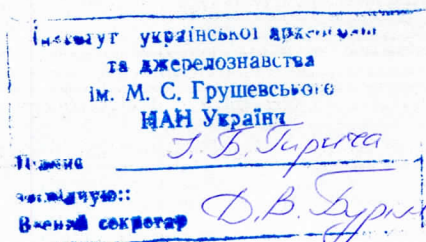 Інститут української археографії
та джерелознавства
ім. М. С. Грушевського
НАН України
Підпис І. Б. Гирича
засвідчую::
Вчений секретар Д. В. Бурім